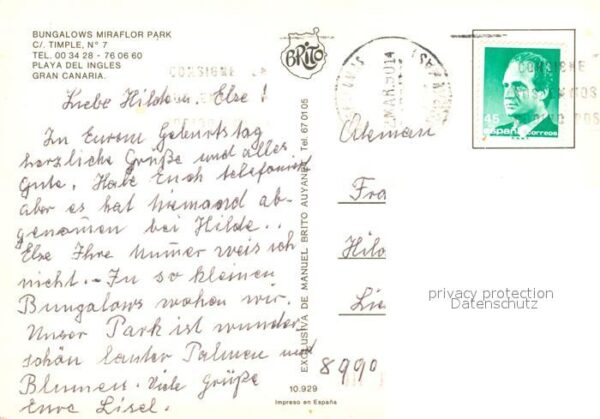 BUNGALOWS MIRAFLOR PARK
C/. TIMPLE, N° 7
TEL. 00 34 28 - 76 06 60
PLAYA DEL INGLES
GRAN CANARIA.
Liebe Hilde u. Else !
In Eurem Geburtstag
herzliche Grüße und alles
Gute. Habe Euch telefoniert
aber es hat niemand ab-
genomen bei Hilde..
Else Ihre Numer weis ich
nicht.- In so kleinen
Bungalows wohen wir.
Unser Park ist wunder
schön lauter Palmen und
Blumen. Viele Grüße
Eure Lisel.
BRITO
EXCLUSIVA DE MANUEL BRITO AUYANET Tel. 67 01 05
10.929
Impreso en España
CONSIGNE
MAR 90 14
CONSIGNE
45
españa correos
Aleman
Fra
Hil
Li
8990
privacy protection
Datenschutz